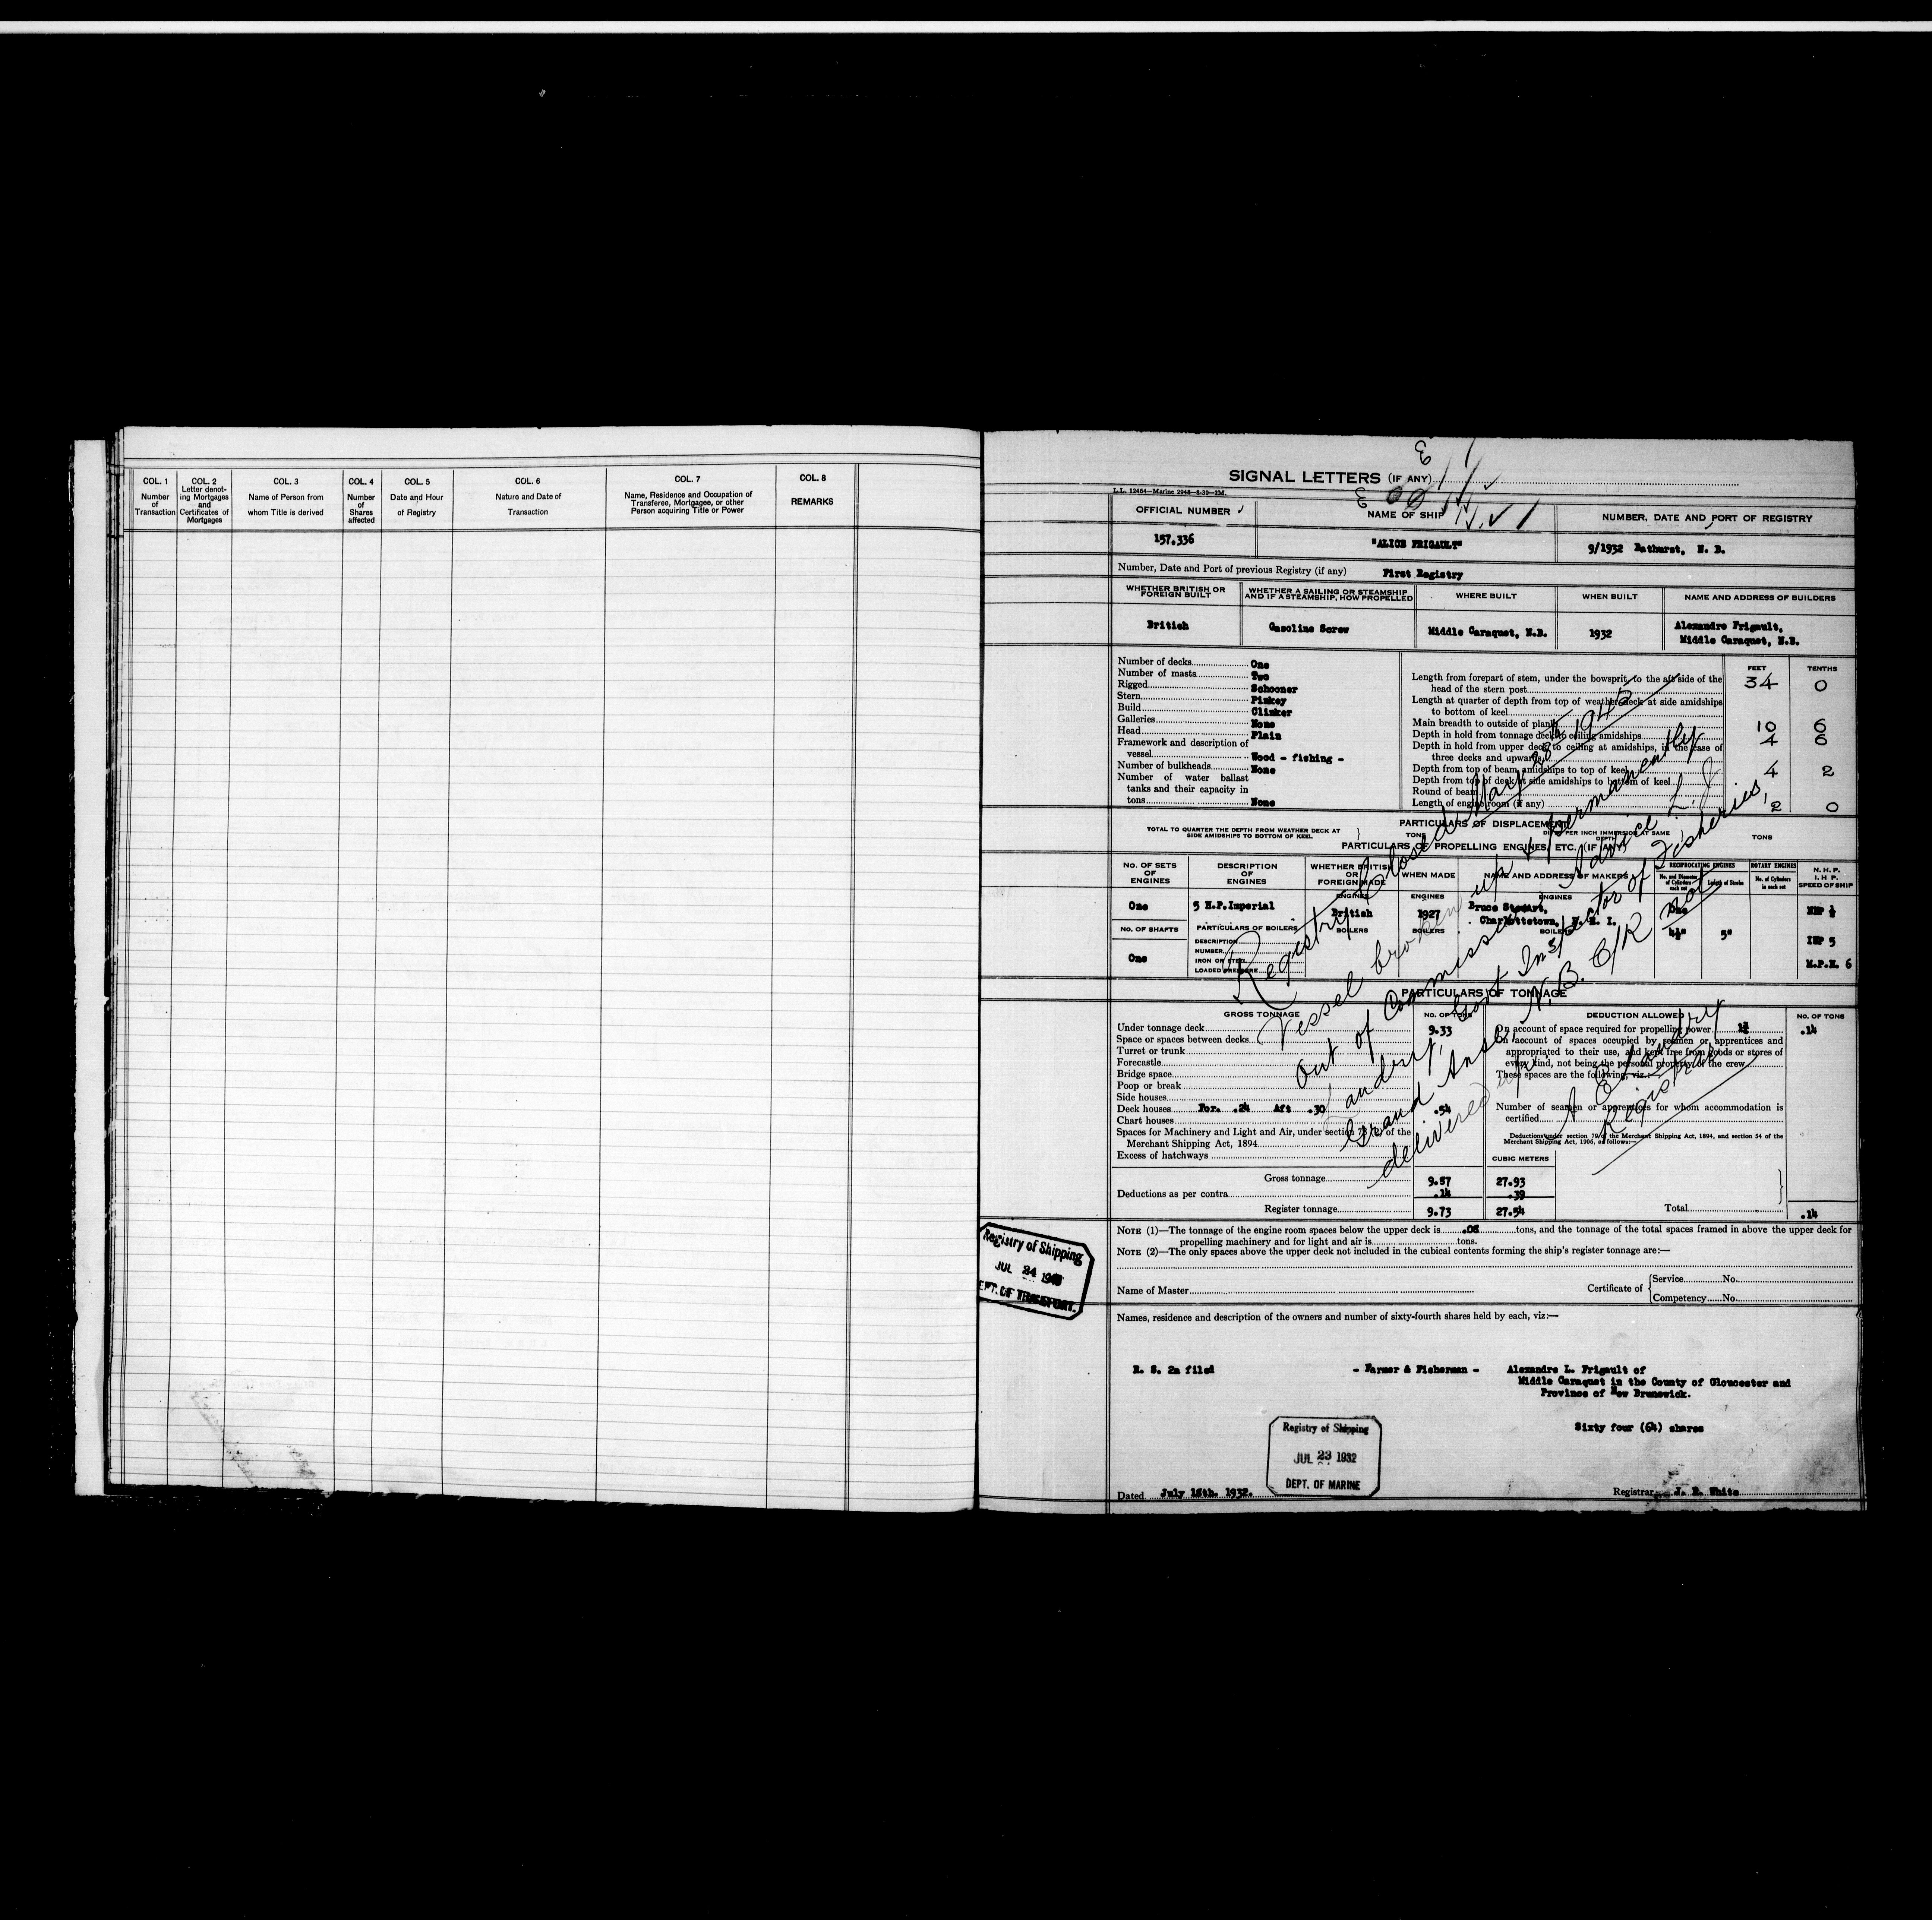 COL. 1
Number
of
Transaction
COL. 2
Letter denot-
ing Mortgages
and
Certificates of
Mortgages
COL. 3
Name of Person from
whom Title is derived
COL. 4
Number
of
Shares
affected
COL. 5
Date and Hour
of Registry
COL. 6
Nature and Date of
Transaction
COL. 7
Name, Residence and Occupation of
Transferee, Mortgagee, or other
Person acquiring Title or Power
COL. 8
REMARKS
SIGNAL LETTERS (IF ANY)
L.L. 12464—Marine 2948—8-30—2M.
OFFICIAL NUMBER
NAME OF SHIP
NUMBER, DATE AND PORT OF REGISTRY
157.336
"ALICE FRIGAULT"
9/1932 Bathurst, N. B.
Number, Date and Port of previous Registry (if any) First Registry
WHETHER BRITISH OR
FOREIGN BUILT
WHETHER A SAILING OR STEAMSHIP
AND IF A STEAMSHIP, HOW PROPELLED
WHERE BUILT
WHEN BUILT
NAME AND ADDRESS OF BUILDERS
British
Gasoline Screw
Middle Caraquet, N.B.
1932
Alexandre Frigault,
Middle Caraquet, N.B.
Number of decks One
Number of masts Two
Rigged Schooner
Stern Pinkey
Build Clinker
Galleries None
Head Plain
Framework and description of
vessel Wood - fishing -
Number of bulkheads None
Number of water ballast
tanks and their capacity in
tons None
FEET TENTHS
Length from forepart of stem, under the bowsprit, to the aft side of the
head of the stern post 34 0
Length at quarter of depth from top of weather deck at side amidships
to bottom of keel
Main breadth to outside of plank 10 6
Depth in hold from tonnage deck to ceiling amidships 4 6
Depth in hold from upper deck to ceiling at amidships, in the case of
three decks and upwards
Depth from top of beam amidships to top of keel 4 2
Depth from top of deck at side amidships to bottom of keel
Round of beam
Length of engine room (if any) 2 0
PARTICULARS OF DISPLACEMENT
TOTAL TO QUARTER THE DEPTH FROM WEATHER DECK AT
SIDE AMIDSHIPS TO BOTTOM OF KEEL
TONS
PER INCH IMMERSION AT SAME
DEPTH
TONS
PARTICULARS OF PROPELLING ENGINES, ETC. (IF ANY)
NO. OF SETS
OF
ENGINES
DESCRIPTION
OF
ENGINES
WHETHER BRITISH
OR
FOREIGN MADE
WHEN MADE
NAME AND ADDRESS OF MAKERS
RECIPROCATING ENGINES
No. and Diameter
of Cylinders
each set
Length of Stroke
ROTARY ENGINES
No. of Cylinders
in each set
N. H. P.
I. H. P.
SPEED OF SHIP
ENGINES
ENGINES
ENGINES
One
5 H.P. Imperial
British
1927
Bruce Stewart,
Charlottetown, P. E. I.
One
4½"
5"
NHP ½
IHP 5
M.P.H. 6
NO. OF SHAFTS
One
PARTICULARS OF BOILERS
DESCRIPTION
NUMBER
IRON OR STEEL
LOADED PRESSURE
BOILERS
BOILERS
BOILERS
PARTICULARS OF TONNAGE
GROSS TONNAGE
NO. OF TONS
Under tonnage deck 9.33
Space or spaces between decks
Turret or trunk
Forecastle
Bridge space
Poop or break
Side houses
Deck houses For. .24 Aft .30 .54
Chart houses
Spaces for Machinery and Light and Air, under section 78 (2) of the
Merchant Shipping Act, 1894
Excess of hatchways
Gross tonnage 9.87
Deductions as per contra .14
Register tonnage 9.73
CUBIC METERS
27.93
.39
27.54
DEDUCTION ALLOWED
NO. OF TONS
On account of space required for propelling power .14
On account of spaces occupied by seamen or apprentices and
appropriated to their use, and kept free from goods or stores of
every kind, not being the personal property of the crew
These spaces are the following, viz.:—
Number of seamen or apprentices for whom accommodation is
certified
Deductions under section 79 of the Merchant Shipping Act, 1894, and section 54 of the
Merchant Shipping Act, 1906, as follows:—
Total .14
Registry Closed May 28th 1945
Vessel broken up & permanently
out of Commission Advice L. J.
Landry, Asst Inspector of Fisheries,
Grand Anse, N. B. C/R not
delivered up.
A E Landry
Registrar
NOTE (1)—The tonnage of the engine room spaces below the upper deck is .08 tons, and the tonnage of the total spaces framed in above the upper deck for
propelling machinery and for light and air is tons.
NOTE (2)—The only spaces above the upper deck not included in the cubical contents forming the ship's register tonnage are:—
Registry of Shipping
JUL 24
DEPT. OF TRANSPORT.
Name of Master
Certificate of
Service No.
Competency No.
Names, residence and description of the owners and number of sixty-fourth shares held by each, viz:—
R. S. 2a filed
- Farmer & Fisherman -
Alexandre L. Frigault of
Middle Caraquet in the County of Gloucester and
Province of New Brunswick.
Sixty four (64) shares
Registry of Shipping
JUL 23 1932
DEPT. OF MARINE
Dated July 18th. 1932.
Registrar J. B. White